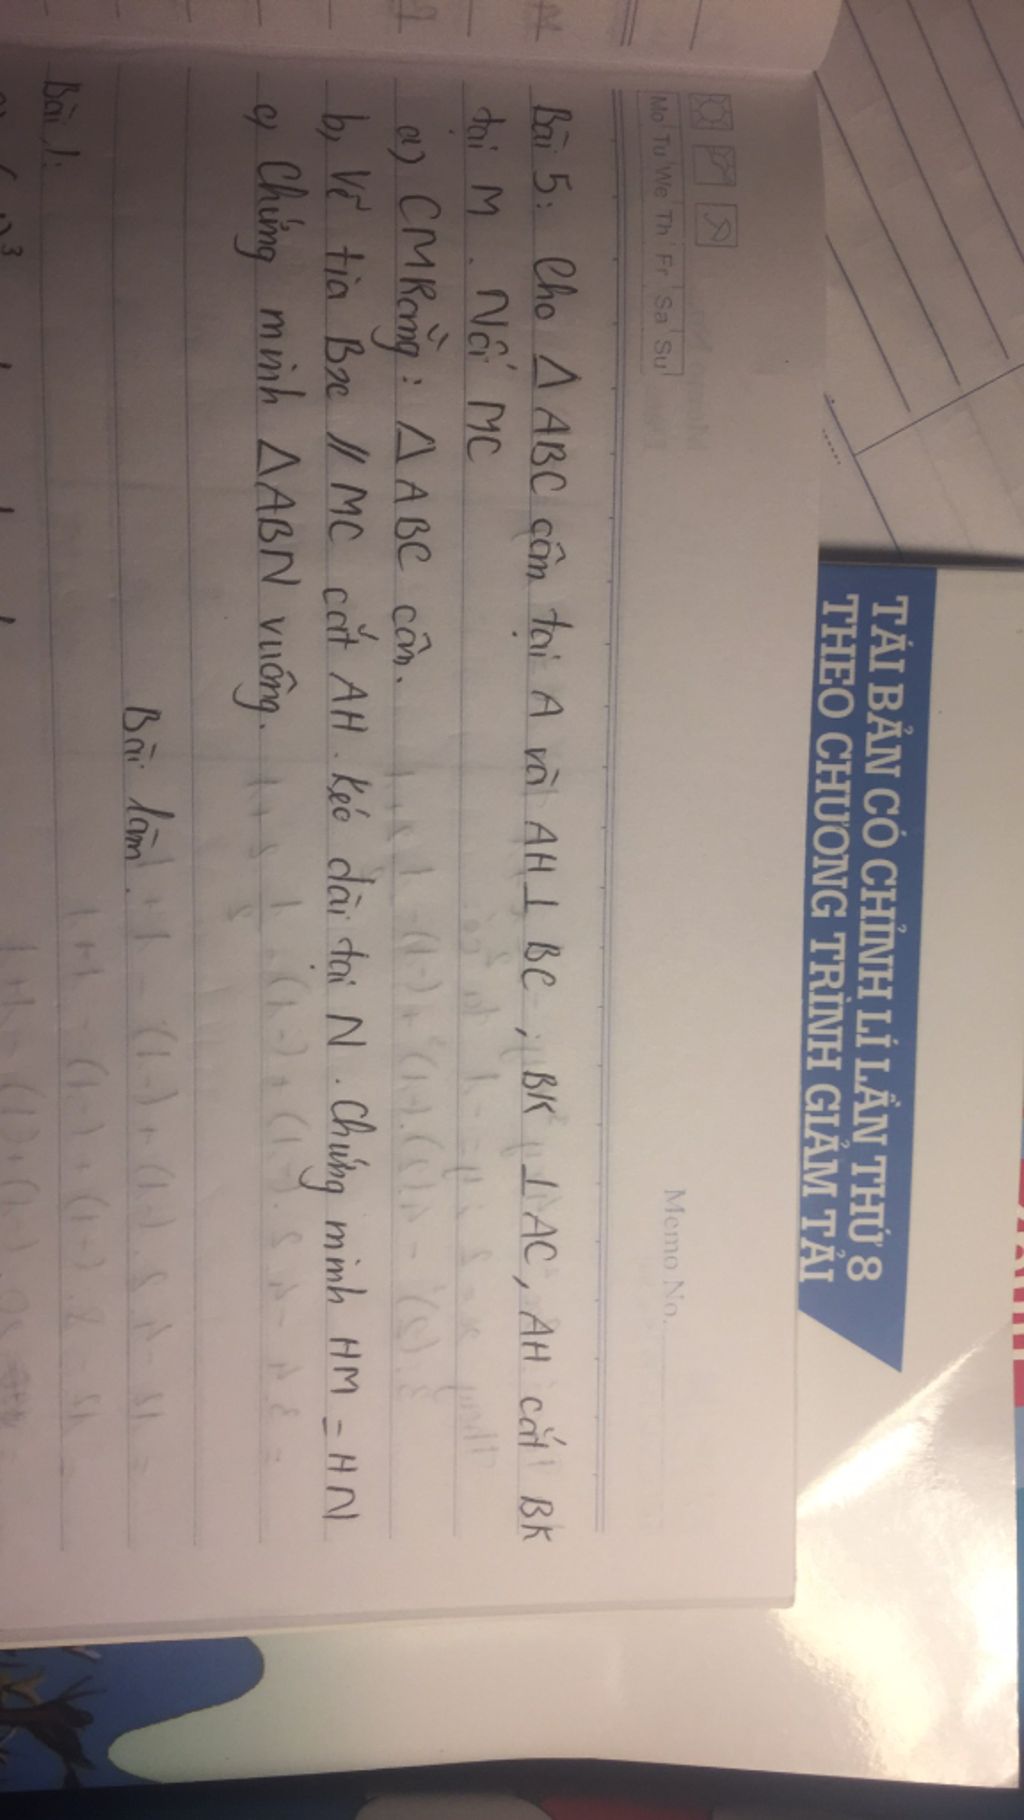 Mo Tu We Th Fr Sa Su
Memo No.
Bài 5: Cho Δ ABC cân tại A và AH ⊥ BC, BK ⊥ AC, AH cắt BK
tại M. Nối MC
a) CMRằng: Δ ABC cân.
b, Vẽ tia Bx // MC cắt AH. kéo dài tại N. Chứng minh HM = HN
c) Chứng minh ΔABN vuông.
Bài làm.
Bài 1:
TÁI BẢN CÓ CHỈNH LÍ LẦN THỨ 8
THEO CHƯƠNG TRÌNH GIẢM TẢI